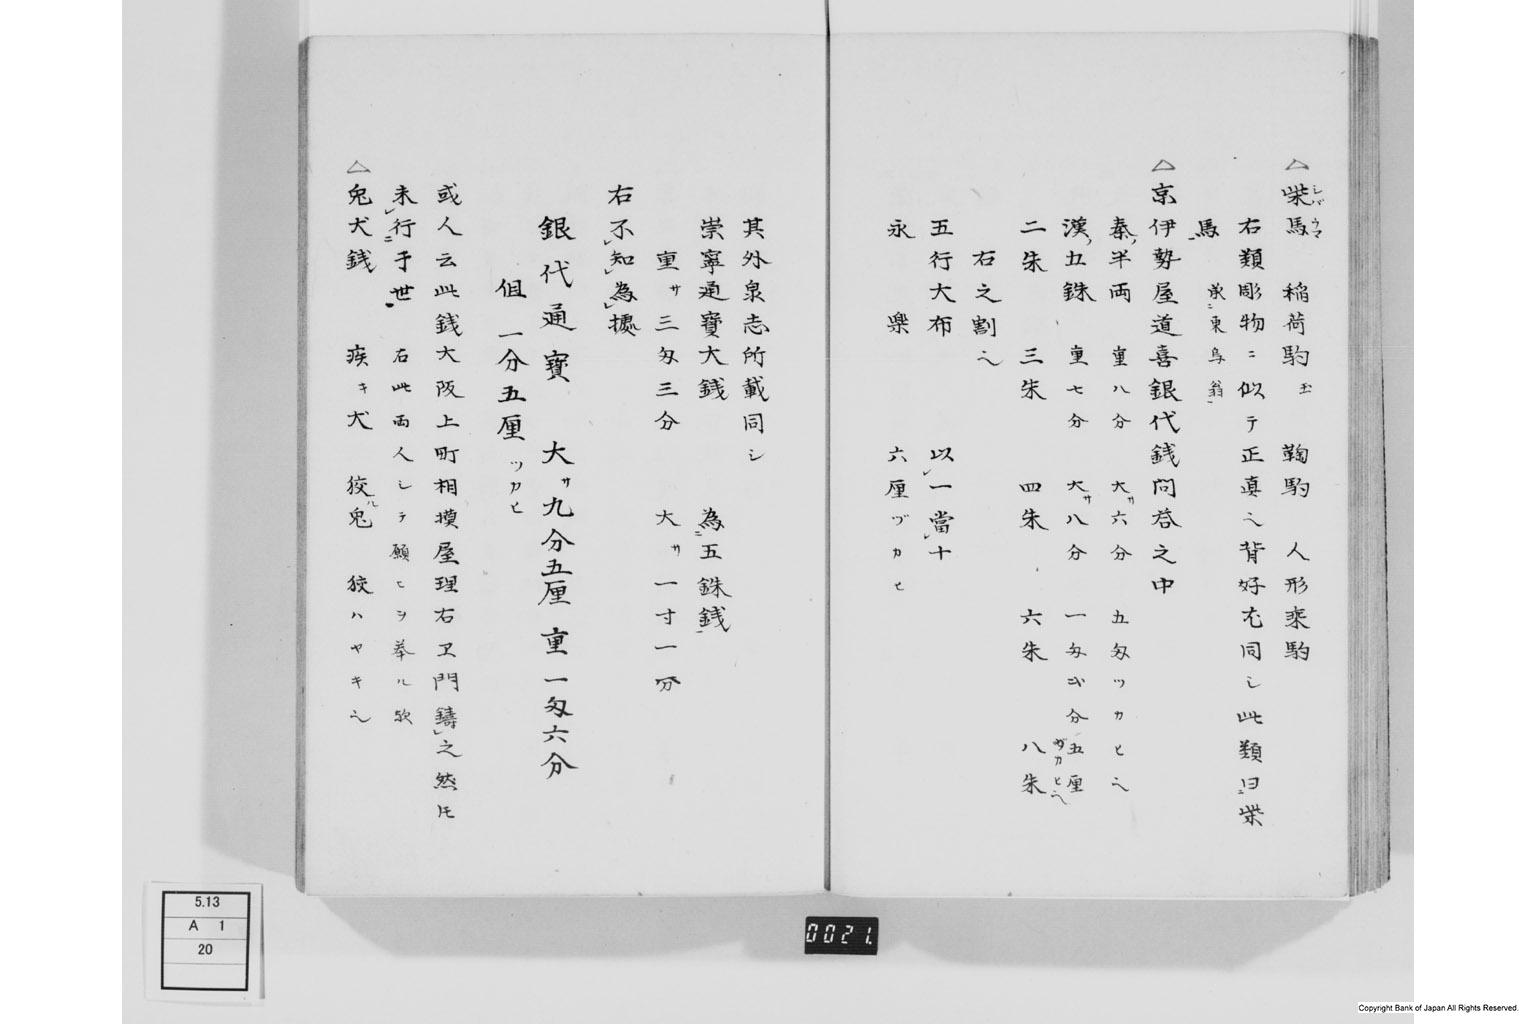 △柴馬 稲荷駒 玉 鞠駒 人形乗駒
シバウマ
右類彫物ニ似テ正真之背好尤同シ此類曰ニ柴
馬ト 東鳥翁
△京伊勢屋道喜銀代銭問答之中
秦ノ半両 重八分 大サ六分 五匁ツカヒ也
漢ノ五銖 重七分 大サ八分 一匁弐分五厘ヅカヒ也
二朱 三朱 四朱 六朱 八朱
右之割也
五行大布 以レ一當レ十
永樂 六厘ヅカヒ
其外泉志所載同シ
崇寧通寳大銭 為ニ五銖銭ニ
重サ三匁三分 大サ一寸一分
右不レ知レ為レ據
銀代通寳 大サ九分五厘 重一匁六分
但一分五厘ツカヒ
或人云此銭大阪上町相摸屋理右ヱ門鋳レ之然モ
未レ行ニ于世 右此両人シテ願ヒヲ挙ル歟
△兔犬銭 疾キ犬 狡ル兔 狡ハヤキ也
5.13
A 1
20
0021.
Copyright Bank of Japan All Rights Reserved.